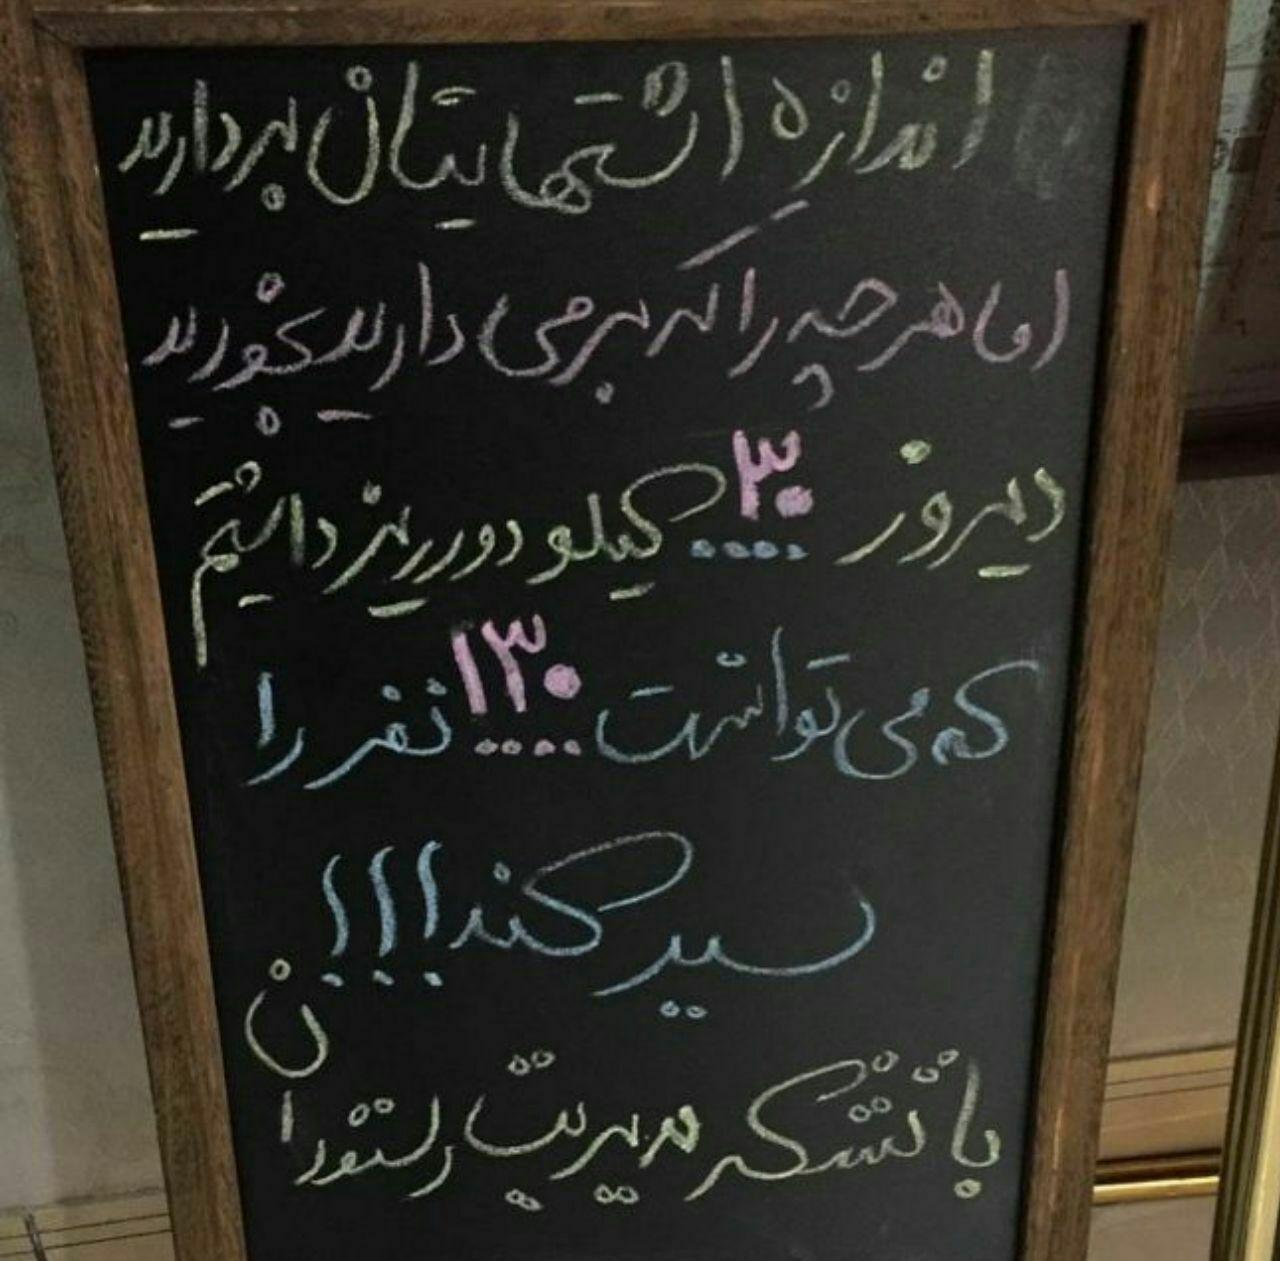 اندازه اشتهایتان بردارید
اما هر چه را که بر می دارید بخورید
دیروز ۳۰ .... کیلو دورریز داشتیم
که می توانست ۱۳۰ .... نفر را
سیر کند!!!
با تشکر مدیریت رستوران